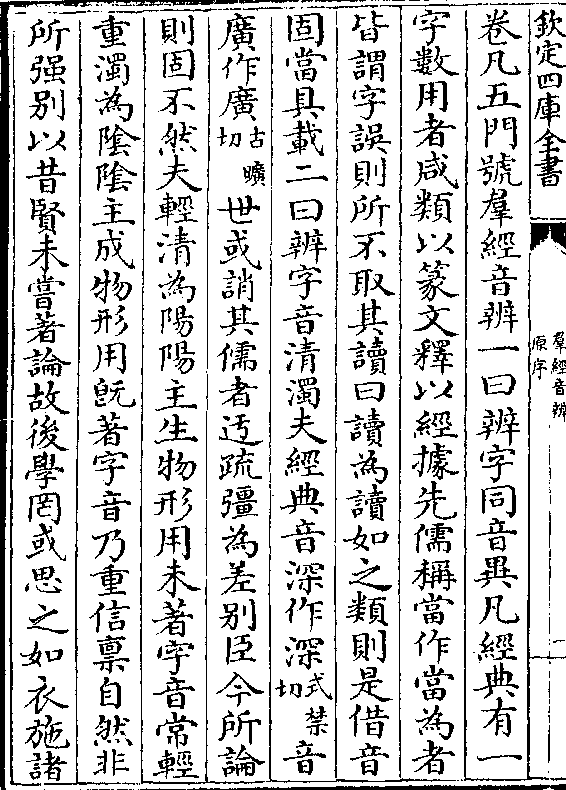 欽定四庫全書
羣經音辨
原字
二
卷凡五門號羣經音辨一曰辨字同音異凡經典有一
字數用者咸類以篆文釋以經據先儒稱當作當為者
皆謂字誤則所不取其讀曰讀為讀如之類則是借音
固當具載二曰辨字音清濁夫經典音深作深式禁切音
廣作廣古曠切世或誚其儒者迃疏彊為差别臣今所論
則固不然夫輕清為陽陽主生物形用未著字音常輕
重濁為陰陰主成物形用旣著字音乃重信禀自然非
所强别以昔賢未嘗著論故後學罔或思之如衣施諸